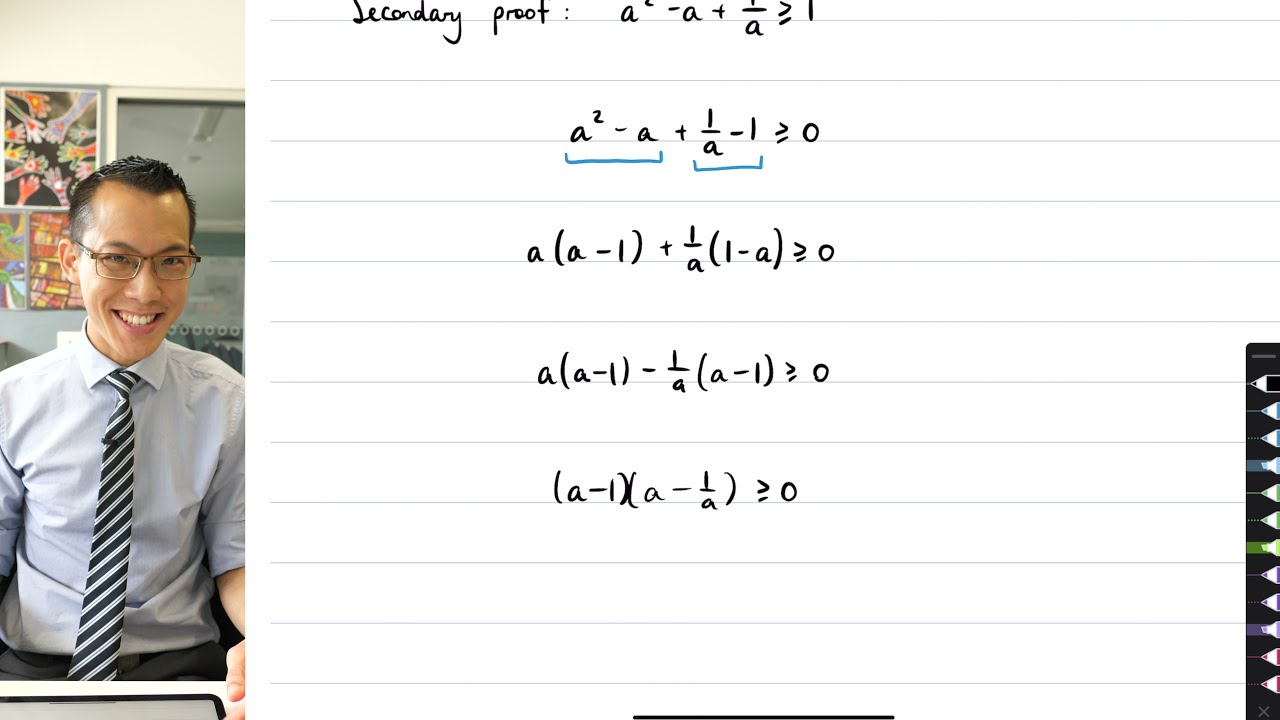 Secondary proof: a² - a + 1/a ≥ 1
a² - a + 1/a - 1 ≥ 0
a(a - 1) + 1/a(1 - a) ≥ 0
a(a - 1) - 1/a(a - 1) ≥ 0
(a - 1)(a - 1/a) ≥ 0